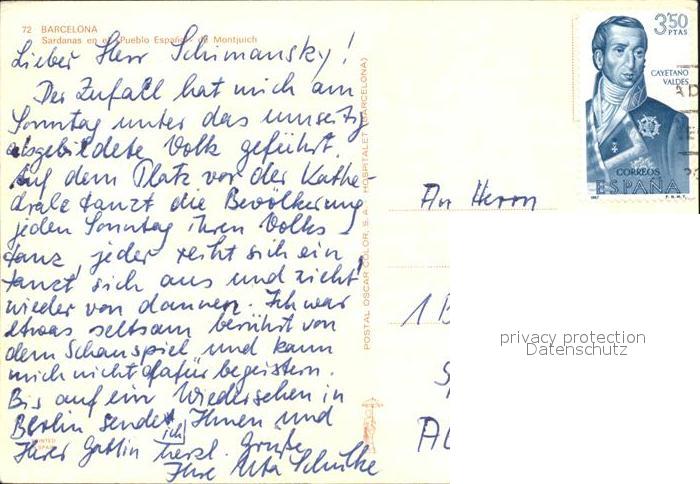 72 BARCELONA
Sardanas en el "Pueblo Español" de Montjuich
Lieber Herr Schimansky!
Der Zufall hat mich am
Sonntag unter das umseitig
abgebildete Volk geführt.
Auf dem Platz vor der Kathe-
drale tanzt die Bevölkerung
jeden Sonntag ihren Volks-
tanz, jeder reiht sich ein,
tanzt sich aus und zieht
wieder von dannen. Ich war
etwas seltsam berührt von
dem Schauspiel und kann
mich nicht dafür begeistern.
Bis auf ein Wiedersehen in
Berlin sendet Ihnen und
Ihrer Gattin ich herzl. Grüße
Ihre Uta Schulke
POSTAL OSCAR COLOR, S. A. HOSPITALET (BARCELONA)
3'50
PTAS
CAYETANO
VALDES
CORREOS
ESPAÑA
1967 F.N.M.T.
An Herrn
1 B
privacy protection
Datenschutz